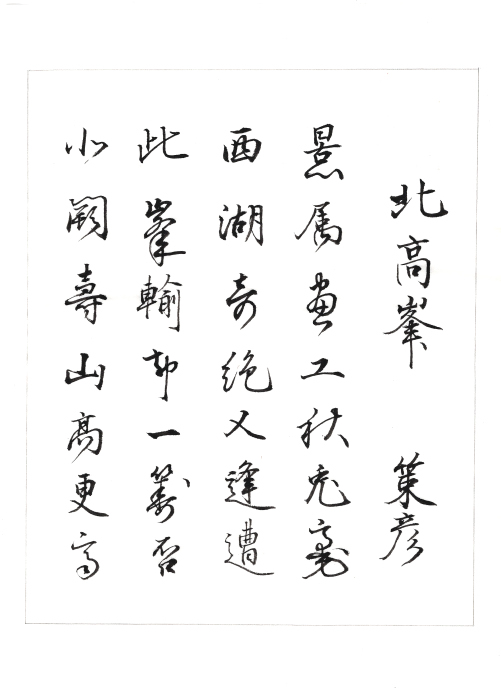 北高峯 策彦
景属畫工秋兎毫
西湖奇絶又逢遭
此峯輸却一籌否
北闕壽山高更高